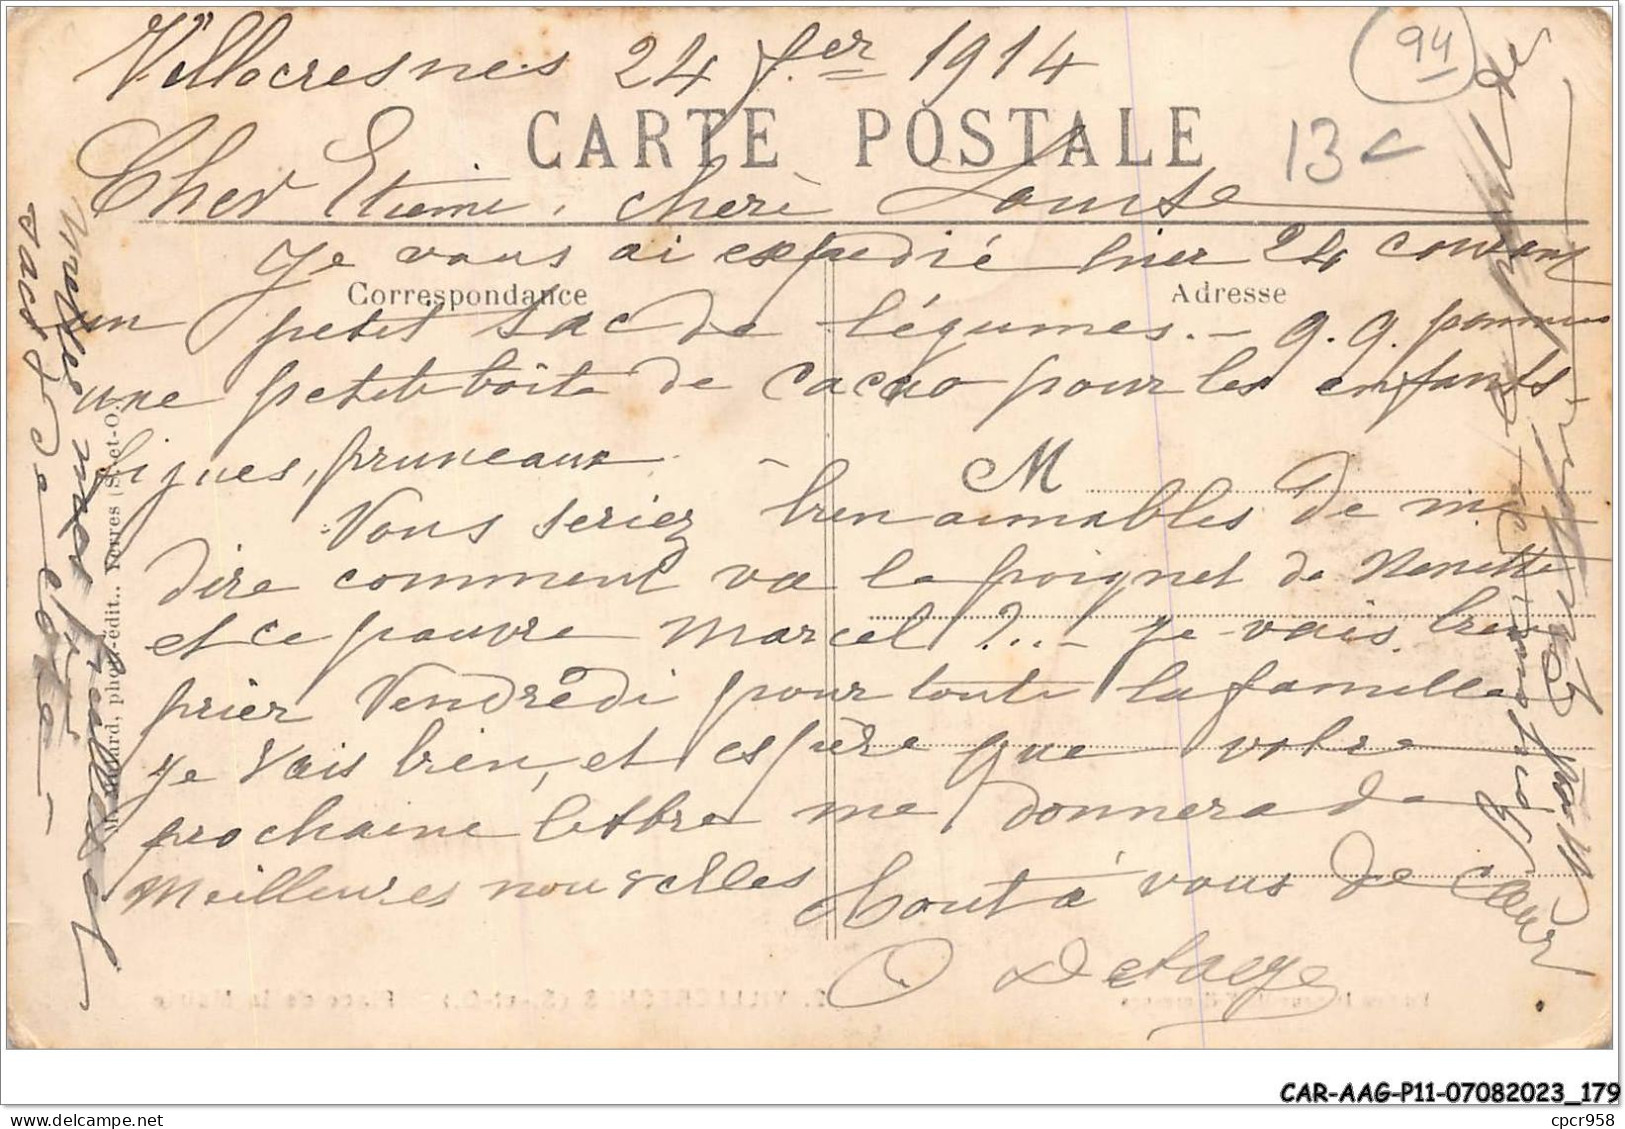 Villecresnes 24 f.er 1914
94
CARTE POSTALE
13 c
Cher Etienne, chère Louise
Je vous ai expédié hier 24 courant
Correspondance
Adresse
un petit sac de légumes. - q.q. pommes
une petite boîte de cacao pour les enfants -
figues, pruneaux. -
M
Vous seriez bien aimables de me
dire comment va le poignet de Nenette
et ce pauvre Marcel ?.. - Je vais bien
prier Vendredi pour toute la famille
je vais bien, et espère que votre
prochaine lettre me donnera de
Meilleures nouvelles tout à vous de Cœur
Delaeye
sacs de côté -
phot.-édit.. Yerres (S.-et-O.)
VILLECRESNES (S.-et-O.) - Place de la Mairie
CAR-AAG-P11-07082023_179
cpcr958